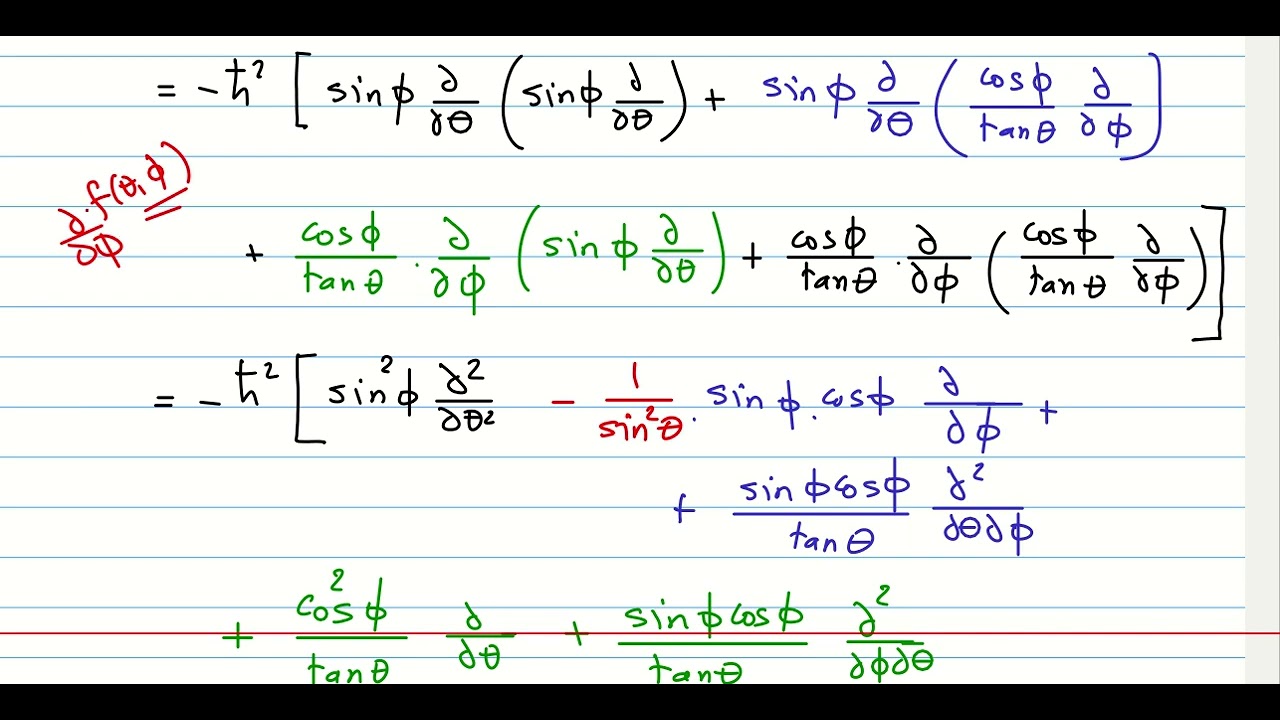 = - ħ² [ sin ϕ ∂/∂θ ( sin ϕ ∂/∂θ ) + sin ϕ ∂/∂θ ( cos ϕ / tan θ ∂/∂ϕ )
∂/∂ϕ · f(θ, ϕ)
+ cos ϕ / tan θ · ∂/∂ϕ ( sin ϕ ∂/∂θ ) + cos ϕ / tan θ · ∂/∂ϕ ( cos ϕ / tan θ ∂/∂ϕ ) ]
= - ħ² [ sin² ϕ ∂²/∂θ² - 1 / sin² θ · sin ϕ . cos ϕ ∂/∂ϕ +
+ sin ϕ cos ϕ / tan θ ∂²/∂θ∂ϕ
+ cos² ϕ / tan θ ∂/∂θ + sin ϕ cos ϕ / tan θ ∂²/∂ϕ∂θ